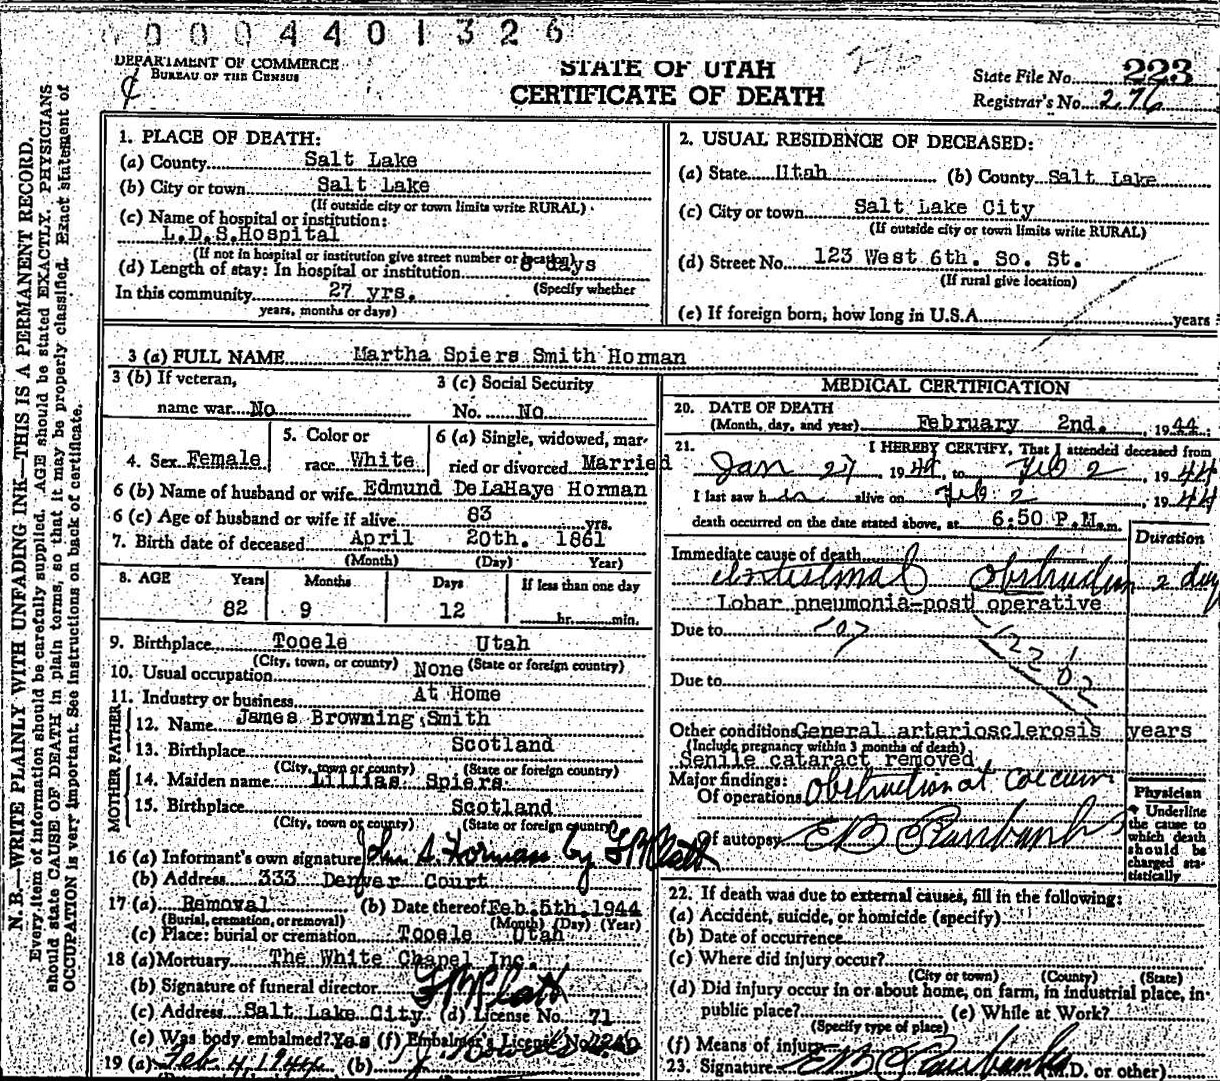 0004401326
DEPARTMENT OF COMMERCE
BUREAU OF THE CENSUS
STATE OF UTAH
CERTIFICATE OF DEATH
State File No. 223
Registrar's No. 276
N. B.—WRITE PLAINLY WITH UNFADING INK—THIS IS A PERMANENT RECORD.
Every item of information should be carefully supplied. AGE should be stated EXACTLY. PHYSICIANS
should state CAUSE OF DEATH in plain terms, so that it may be properly classified. Exact statement of
OCCUPATION is very important. See instructions on back of certificate.
1. PLACE OF DEATH:
(a) County Salt Lake
(b) City or town Salt Lake
(If outside city or town limits write RURAL)
(c) Name of hospital or institution:
L.D.S.Hospital
(If not in hospital or institution give street number or location)
(d) Length of stay: In hospital or institution 8 days
(Specify whether
In this community 27 yrs.
years, months or days)
2. USUAL RESIDENCE OF DECEASED:
(a) State Utah (b) County Salt Lake
(c) City or town Salt Lake City
(If outside city or town limits write RURAL)
(d) Street No. 123 West 6th. So. St.
(If rural give location)
(e) If foreign born, how long in U.S.A. years
3 (a) FULL NAME Martha Spiers Smith Horman
3 (b) If veteran, 3 (c) Social Security
name war No No. No
4. Sex Female
5. Color or
race White
6 (a) Single, widowed, mar-
ried or divorced Married
6 (b) Name of husband or wife Edmund DeLaHaye Horman
6 (c) Age of husband or wife if alive 83 yrs.
7. Birth date of deceased April 20th. 1861
(Month) (Day) Year)
8. AGE Years Months Days If less than one day
82 9 12 hr. min.
9. Birthplace Tooele Utah
(City, town, or county) (State or foreign country)
10. Usual occupation None
11. Industry or business At Home
FATHER
12. Name James Browning Smith
13. Birthplace Scotland
(City, town or county) (State or foreign country)
MOTHER
14. Maiden name Lillias Spiers
15. Birthplace Scotland
(City, town or county) (State or foreign country)
16 (a) Informant's own signature John S. Horman by
(b) Address 333 Denver Court
17 (a) Removal (b) Date thereof Feb. 5th. 1944
(Burial, cremation, or removal) (Month) (Day) (Year)
(c) Place: burial or cremation Tooele Utah
18 (a) Mortuary The White Chapel Inc.
(b) Signature of funeral director
(c) Address Salt Lake City (d) License No. 71
(e) Was body embalmed? Yes (f) Embalmer's License No.
19 (a) Feb 4, 1944 (b)
MEDICAL CERTIFICATION
20. DATE OF DEATH
(Month, day, and year) February 2nd. 1944
21. I HEREBY CERTIFY, That I attended deceased from
Jan 27 1944, to Feb 2, 1944
I last saw her alive on Feb. 2, 1944
death occurred on the date stated above, at 6:50 P.M. m.
Duration
Immediate cause of death
Intestinal Obstruction 2 day
Lobar pneumonia-post operative
Due to 107
Due to
Other conditions General arteriosclerosis years
(Include pregnancy within 3 months of death)
Senile cataract removed
Major findings:
Of operations Obstruction at coecum
Of autopsy E B Fairbanks
Physician
Underline
the cause to
which death
should be
charged sta-
tistically
22. If death was due to external causes, fill in the following:
(a) Accident, suicide, or homicide (specify)
(b) Date of occurrence
(c) Where did injury occur?
(City or town) (County) (State)
(d) Did injury occur in or about home, on farm, in industrial place, in
public place? (e) While at Work?
(Specify type of place)
(f) Means of injury
23. Signature E B Fairbanks (M.D. or other)